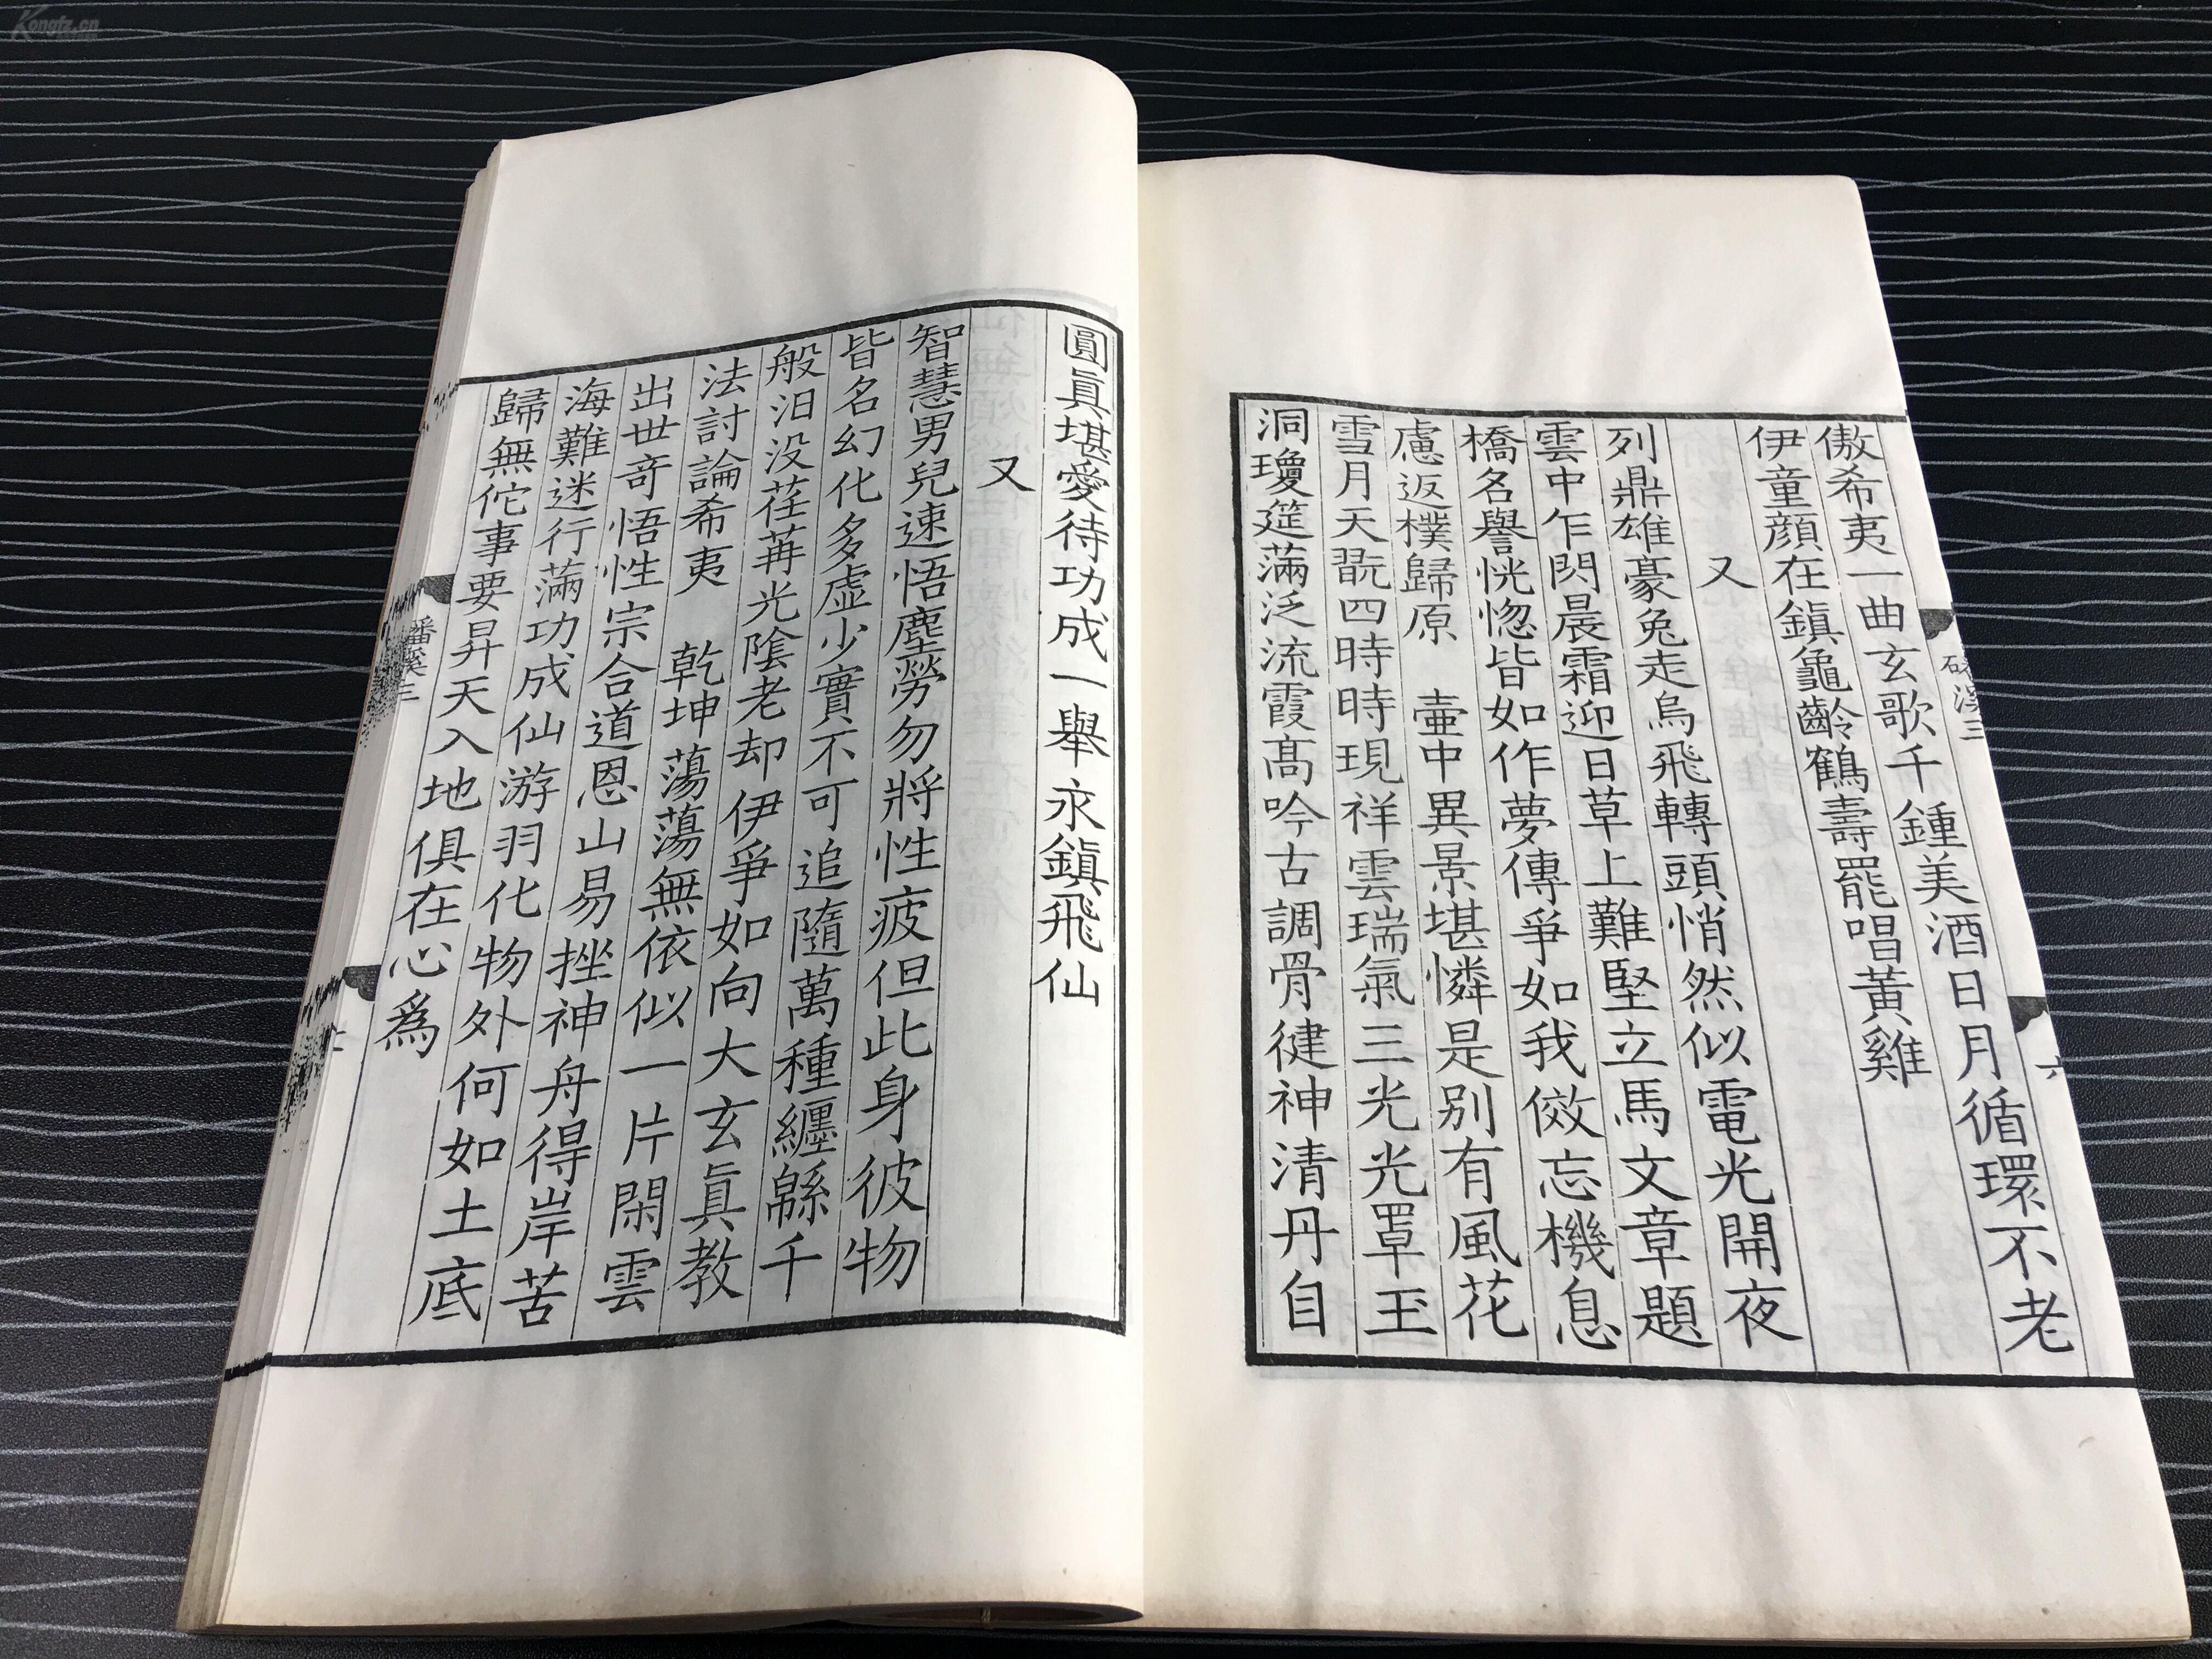 傲希夷一曲玄歌千鍾美酒日月循環不老
伊童顔在鎮龜齡鶴壽罷唱黃雞
又
列鼎雄豪兔走烏飛轉頭悄然似電光開夜
雲中乍閃晨霜迎日草上難堅立馬文章題
橋名譽恍惚皆如作夢傳爭如我傚忘機息
慮返樸歸原　壷中異景堪憐是別有風花
雪月天翫四時時現祥雲瑞氣三光光罩玉
洞瓊筵滿泛流霞高吟古調骨徤神清丹自
圓眞堪愛待功成一舉永鎮飛仙
又
智慧男兒速悟塵勞勿將性疲但此身彼物
皆名幻化多虛少實不可追隨萬種纏緜千
般汨没荏苒光陰老却伊爭如向大玄眞教
法討論希夷　乾坤蕩蕩無依似一片閑雲
出世竒悟性宗合道恩山易挫神舟得岸苦
海難迷行滿功成仙游羽化物外何如土底
歸無佗事要昇天入地俱在心爲
磻溪三
六
Kongfz.cn